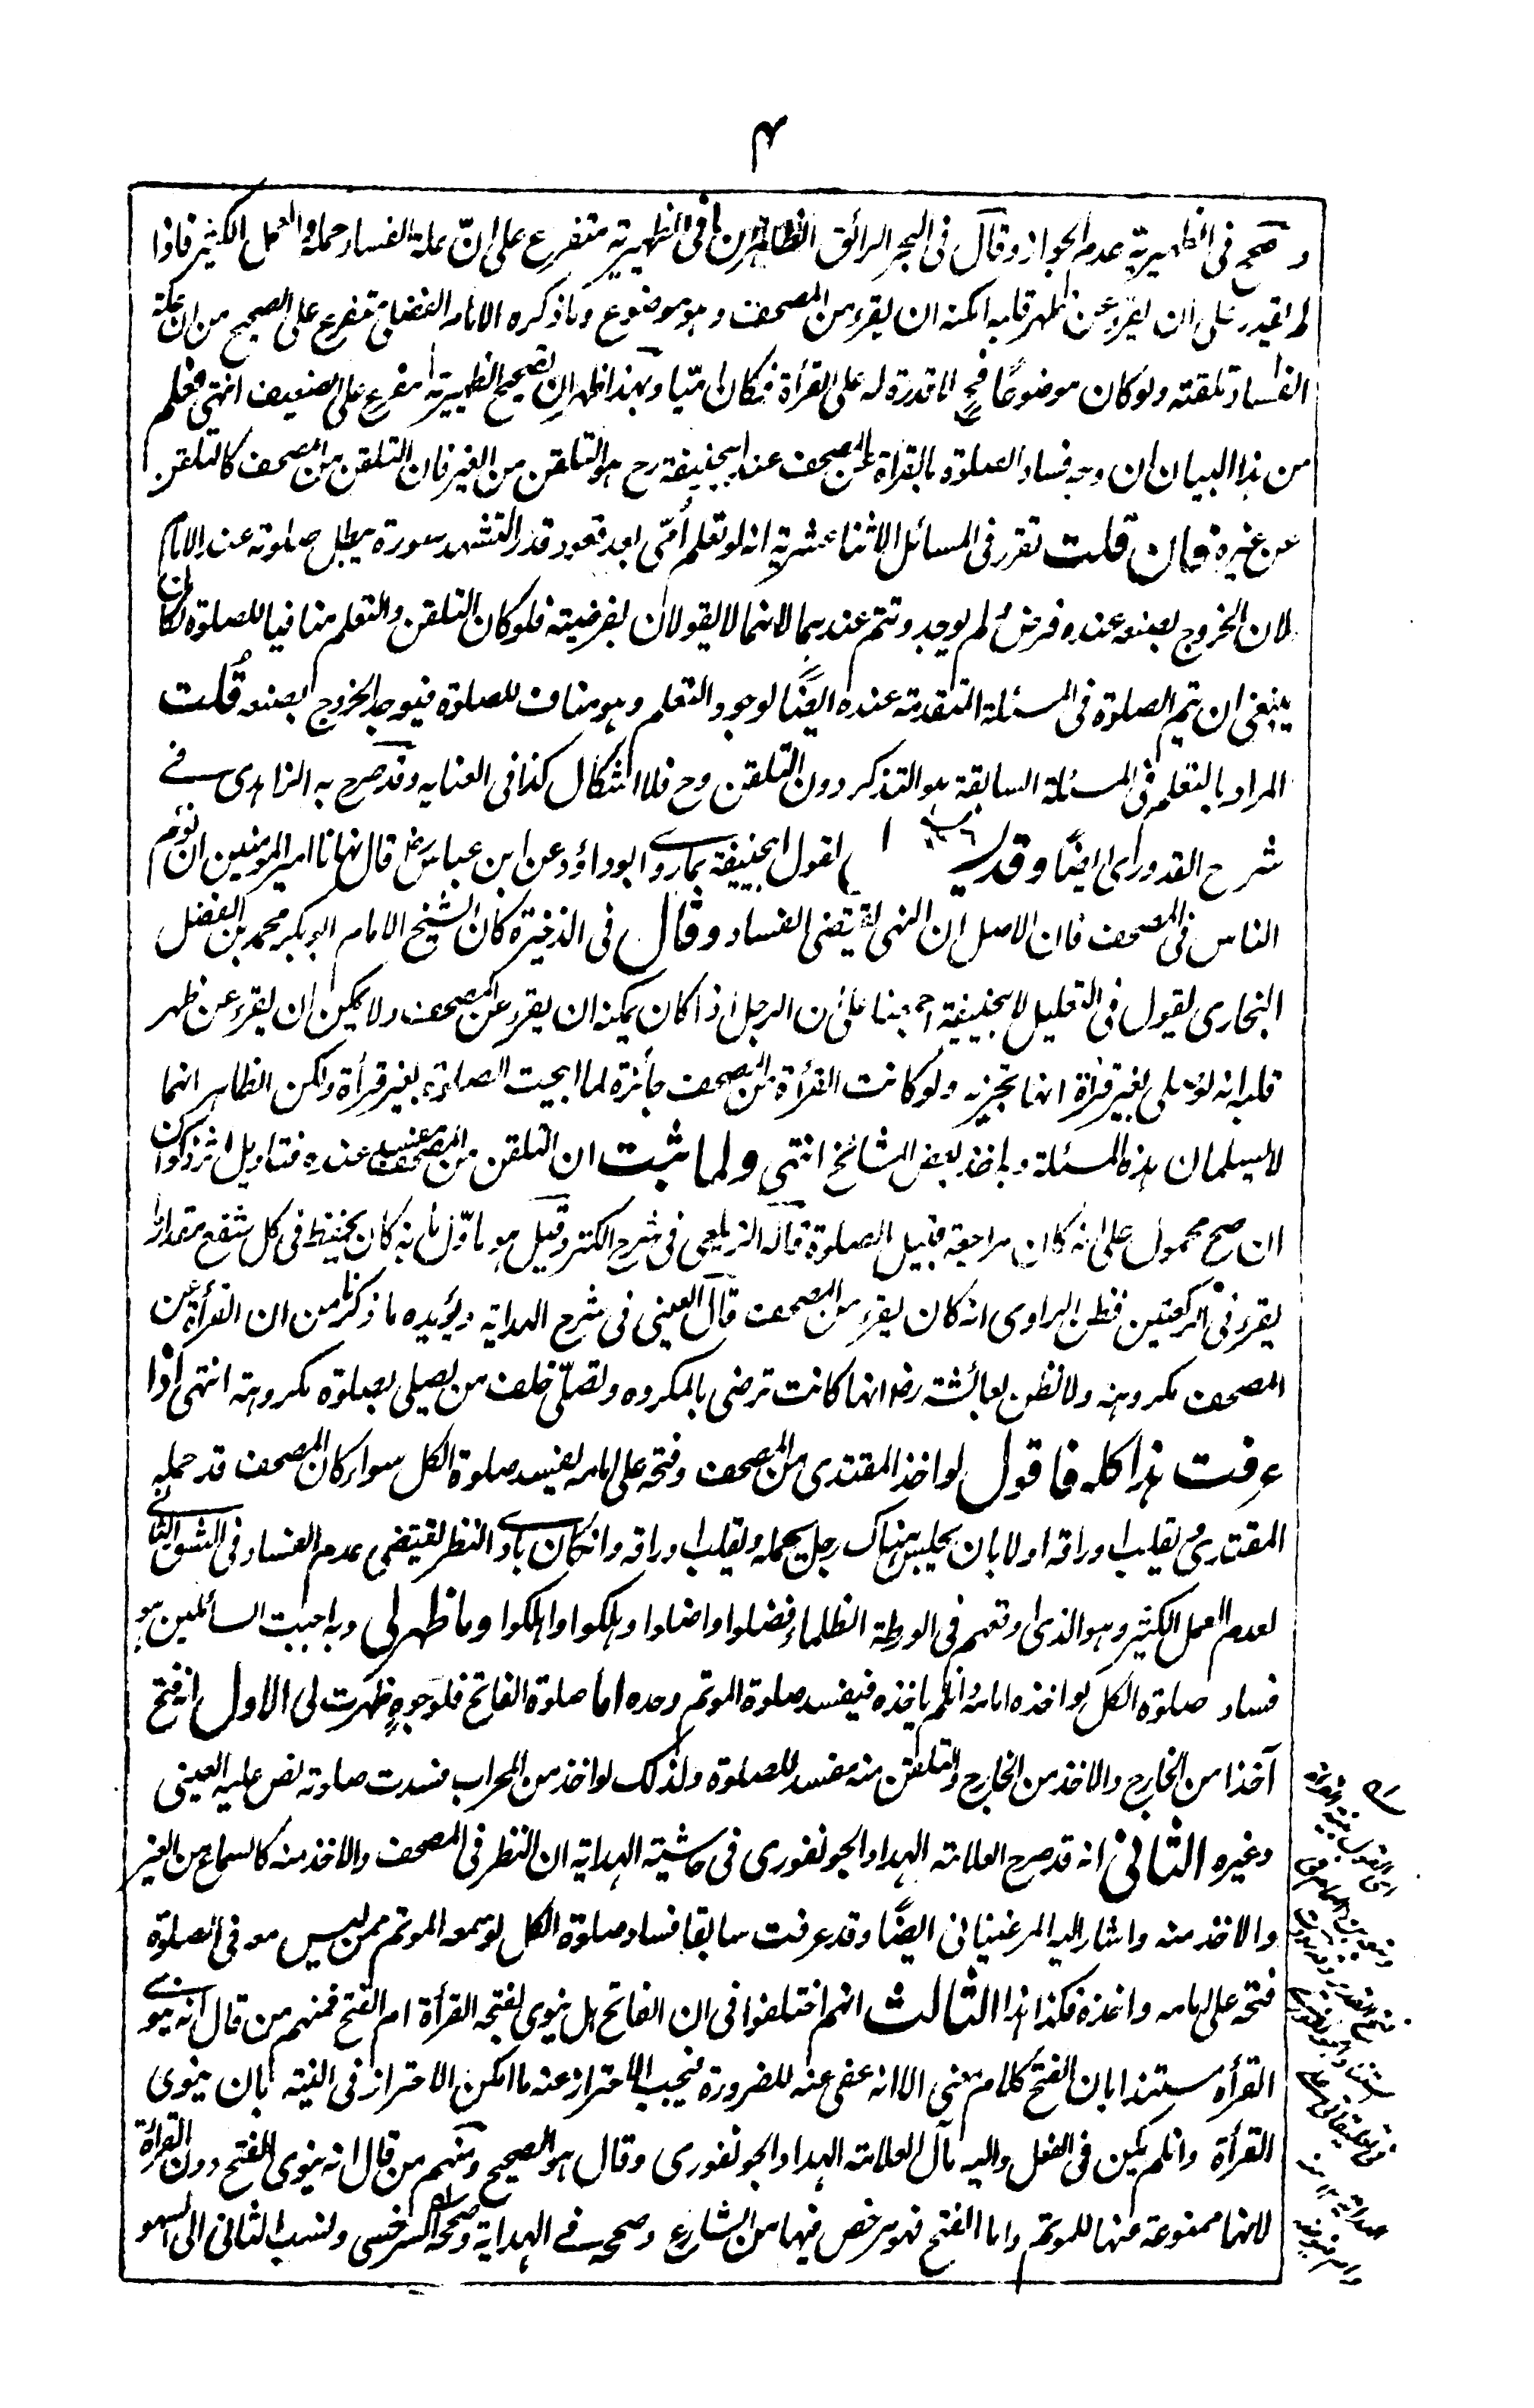 ۴
وصحح فى الظهيرية عدم الجواز وقال فى البحر الرائق الظاهر ان ما فى الظهيرية متفرع على ان علة الفساد حمله والعمل الكثير فاذا
لم يقدر على ان يقرء عن ظهر قلبه امكنه ان يقرء من المصحف وهو موضوع وما ذكره الامام الفضلى متفرع على الصحيح من ان علة
الفساد تلقنه ولو كان موضوعًا فح لا قدرة له على القرأة فكان اميا وبهذا ظهر ان تصحيح الظهيرية مفرع على الضعيف انتهى فعلم
من هذا البيان ان وجه فساد الصلوة بالقراة عن المصحف عند ابيحنيفة رح هو التلقن من الغير فان التلقن من المصحف كالتلقن
عن غيره فان قلت تقرر فى المسائل الاثنا عشرية انه لو تعلم أمّى بعد قعود قدر التشهد سورة يبطل صلوته عند الامام
لان الخروج بصنعه عنده فرض لم يوجد وتتم عندهما لانهما لا يقولان بفرضيته فلو كان التلقن والتعلم منافيا للصلوة لكان
ينبغى ان يتم الصلوة فى المسئلة المتقدمة عنده ايضًا لوجود التعلم وهو مناف للصلوة فيوجد الخروج بصنعه قُلت
المراد بالتعلم فى المسئلة السابقة هو التذكر دون التلقن وح فلا اشكال كذا فى العنايه وقد صرح به الزاهدى فے
شرح القدورى ايضًا وقد لقول ابيحنيفة بما روى ابو داؤد عن ابن عباس رض قال نهانا امير المومنين ان نؤم
الناس فى المصحف فان الاصل ان النهى يقتضى الفساد وقال فى الذخيرة كان الشيخ الامام ابو بكر محمد بن الفضل
البخارى يقول فى التعليل لابيحنيفة اجمعنا على ان الرجل اذا كان يمكنه ان يقرء عن المصحف ولا يمكن ان يقرء عن ظهر
قلبه انه لو صلى بغير قرأة انها تجزيه ولو كانت القرأة من المصحف جائزة لما ابيحت الصلوة بغير قرأة ولكن الظاهر انهما
لا يسلمان هذه المسئلة وبه اخذ بعض المشائخ انتهى ولما ثبت ان التلقن من المصحف مفسد عنده فتاويل اثر ذكوان
ان صح محمول على انه كان مراجعة قبيل الصلوة قاله الزيلعى فى شرح الكنز وقيل هو ماوّل بانه كان يحفظ فى كل شفع مقدارا
يقرء فى الركعتين فظن الراوى انه كان يقرء من المصحف قال العينى فى شرح الهداية ويؤيده ما ذكرنا من ان القرأة عن
المصحف مكروهة ولا نظن بعائشة رض انها كانت ترضى بالمكروه وتصلّى خلف من يصلى بصلوة مكروهة انتهى اذا
عرفت هذا كله فاقول لو اخذ المقتدى من المصحف وفتحه على امامه يفسد صلوة الكل سواء كان المصحف قد حمله
المقتدى ويقلب اوراقه اولا بان يجلس هناك رجل يحمله ويقلب اوراقه وان كان بادى النظر يقتضى عدم الفساد فى الشق الثانى
لعدم العمل الكثير وهو الذى اوقعهم فى الورطة الظلماء فضلوا واضلوا وهلكوا واهلكوا وما ظهر لى وبه اجبت السائلين هو
فساد صلوة الكل لو اخذه امامه وان لم ياخذه فيفسد صلوة الموتم وحده اما صلوة الفاتح فلوجوهٍ ظهرت لى الاول انه فتح
آخذا من الخارج والاخذ من الخارج والتلقن منه مفسد للصلوة ولذلك لو اخذ من المحراب فسدت صلوته نص عليه العينى
وغيره الثانى انه قد صرح العلامة الهداد الجونفورى فى حاشية الهداية ان النظر فى المصحف والاخذ منه كالسماع من الغير
والاخذ منه واشار اليه المرغينانى ايضًا وقد عرفت سابقا فساد صلوة الكل لو سمعه الموتم ممن ليس معه فى الصلوة
فتحه على امامه واخذه فكذا هذا الثالث انهم اختلفوا فى ان الفاتح هل ينوى بفتحه القرأة ام الفتح فمنهم من قال انه ينوى
القرأة مستندا بان الفتح كلام معنى الا انه عفى عنه للضرورة فيجب الاحتراز عنه ما امكن الاحتراز فى النية بان ينوى
القرأة وان لم يكن فى الفعل واليه مال العلامة الهداد الجونفورى وقال هو الصحيح ومنهم من قال انه ينوى الفتح دون القرأة
لانها ممنوعة منها للموتم واما الفتح فهو مرخص فيها من الشارع وصححه فے الهداية وصححه السرخسى ونسب الثانى الى السهو